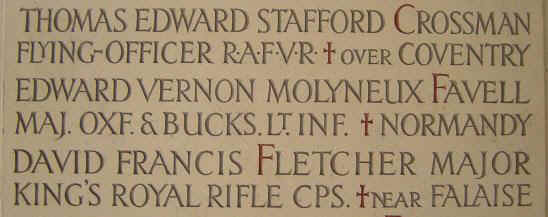 THOMAS EDWARD STAFFORD CROSSMAN
FLYING-OFFICER R·A·F·V·R· † OVER COVENTRY
EDWARD VERNON MOLYNEUX FAVELL
MAJ. OXF. & BUCKS. LT. INF. † NORMANDY
DAVID FRANCIS FLETCHER MAJOR
KING'S ROYAL RIFLE CPS. † NEAR FALAISE